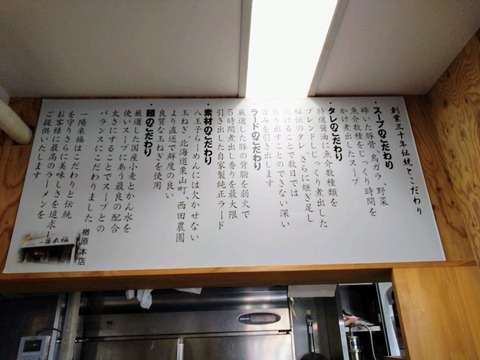 創業三十年伝統とこだわり
・スープのこだわり
砕いた豚骨、鳥ガラ、野菜
魚介数種をじっくり
かけ煮出したスープ
・タレのこだわり
特選醤油に魚介数種類を
ブレンドしじっくり煮出した
福伝のタレ さらに継ぎ足し
続けることで数日では
作り出すことのできない深い
旨味を引き出します
・ラードのこだわり
厳選した豚の背脂を弱火で
5時間煮出し香りを最大限
引き出した自家製純正ラード
・素材のこだわり
八王子らーめんには欠かせない
玉ねぎ、北海道東山町、西田農園
より直送で鮮度の良い
良質な玉ねぎを使用
・麺のこだわり
厳選した国産小麦とかん水を
使いスープにあう最良の配合
太さにすることでスープとの
バランスにこだわりました
一陽来福はこだわりと伝統
を守りさらに美味しさを追求し
お客様に最高のラーメンを
ご提供いたします。
楢原本店